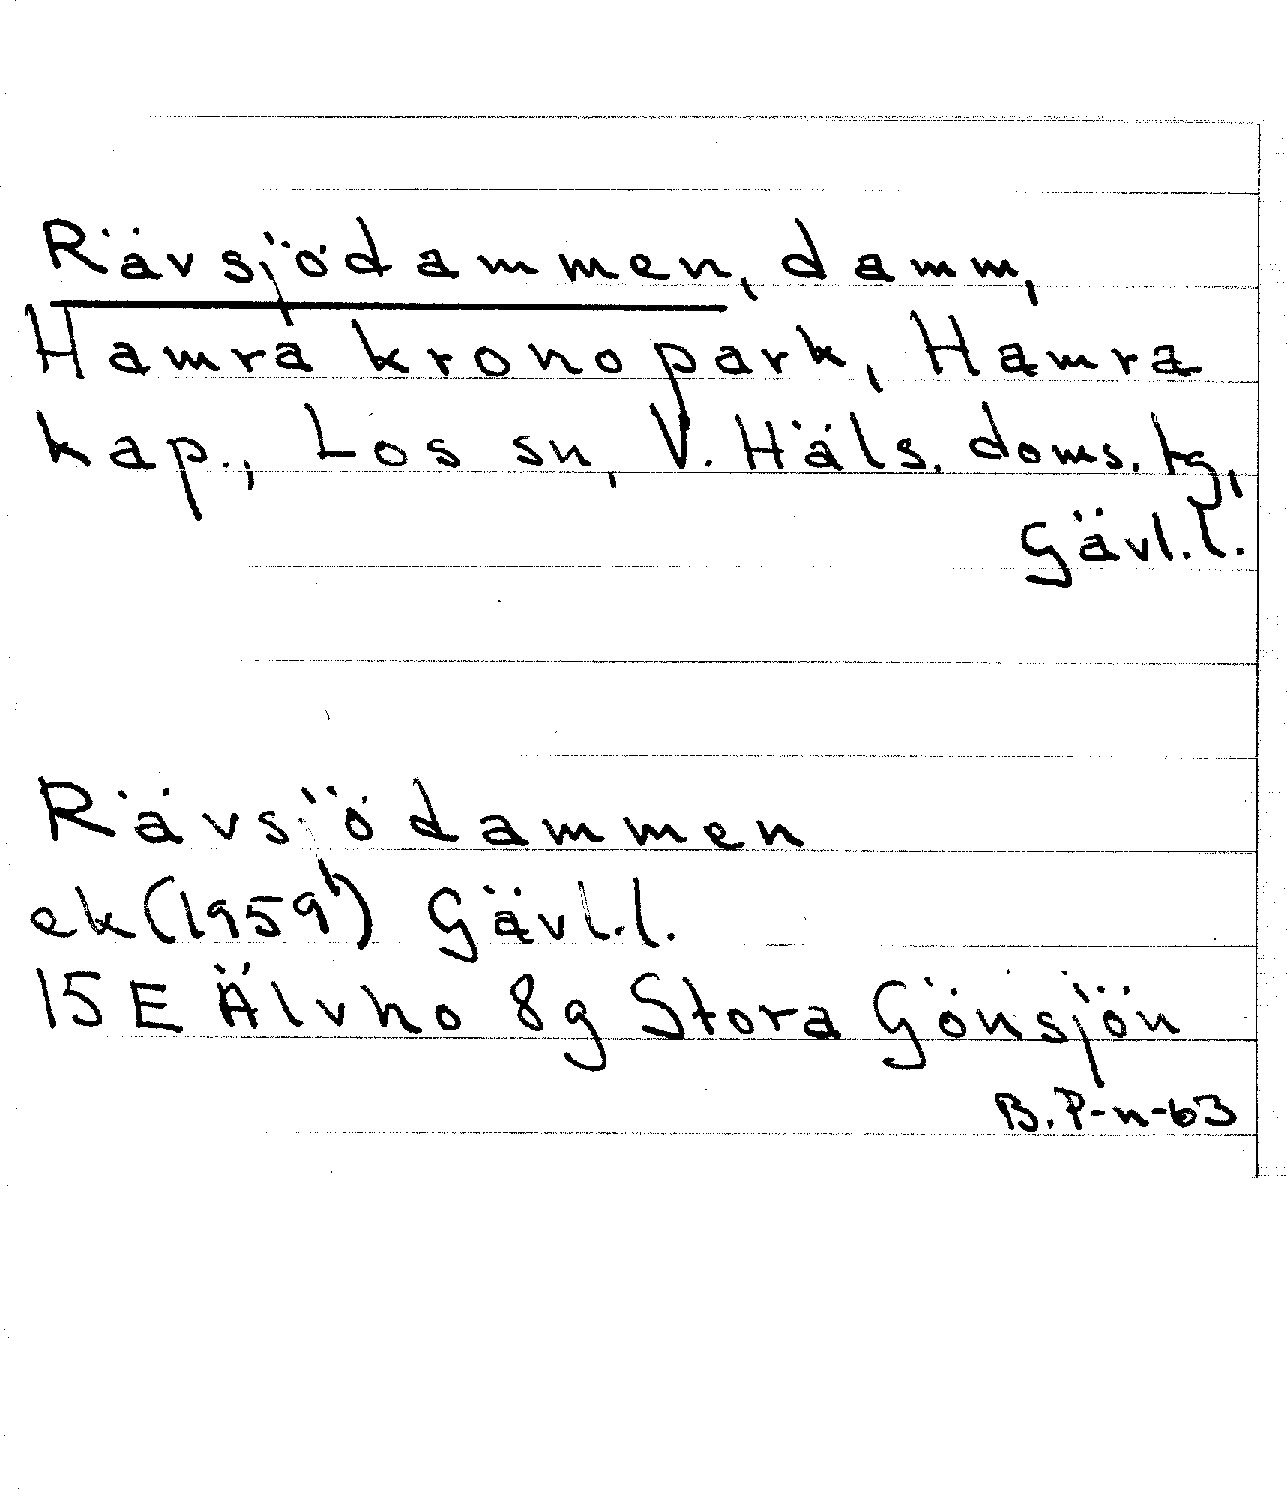 Rävsjödammen, damm,
Hamra kronopark, Hamra
kap., Los sn, V. Häls. doms. tg,
Gävl.l.
Rävsjödammen
ek (1959) Gävl.l.
15E Älvho 8g Stora Gönsjön
B.P-n-63